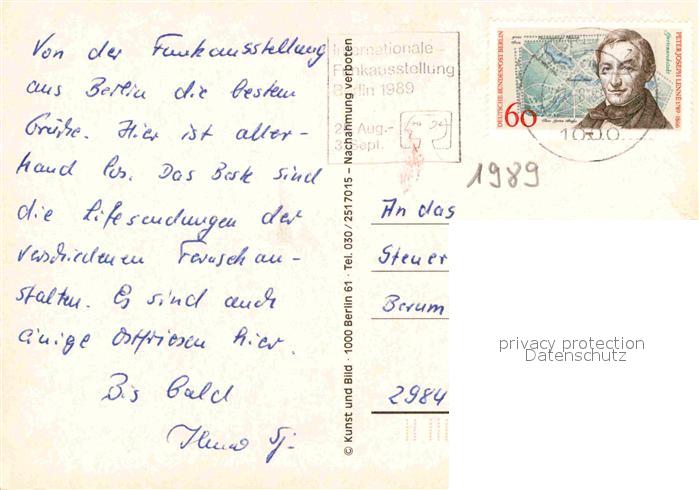 Von der Funkausstellung
aus Berlin die besten
Grüße. Hier ist aller-
hand los. Das Beste sind
die Lifesendungen der
verschiedenen Fernsehan-
stalten. Es sind auch
einige Ostfriesen hier.
Bis bald
© Kunst und Bild · 1000 Berlin 61 · Tel. 030 / 2517015 – Nachahmung verboten
Internationale
Funkausstellung
Berlin 1989
Aug.-
3. Sept.
DEUTSCHE BUNDESPOST BERLIN
60
PETER JOSEPH LENNÉ 1789-1866
1000
1989
An das
Steuer
Berum
2984
privacy protection
Datenschutz